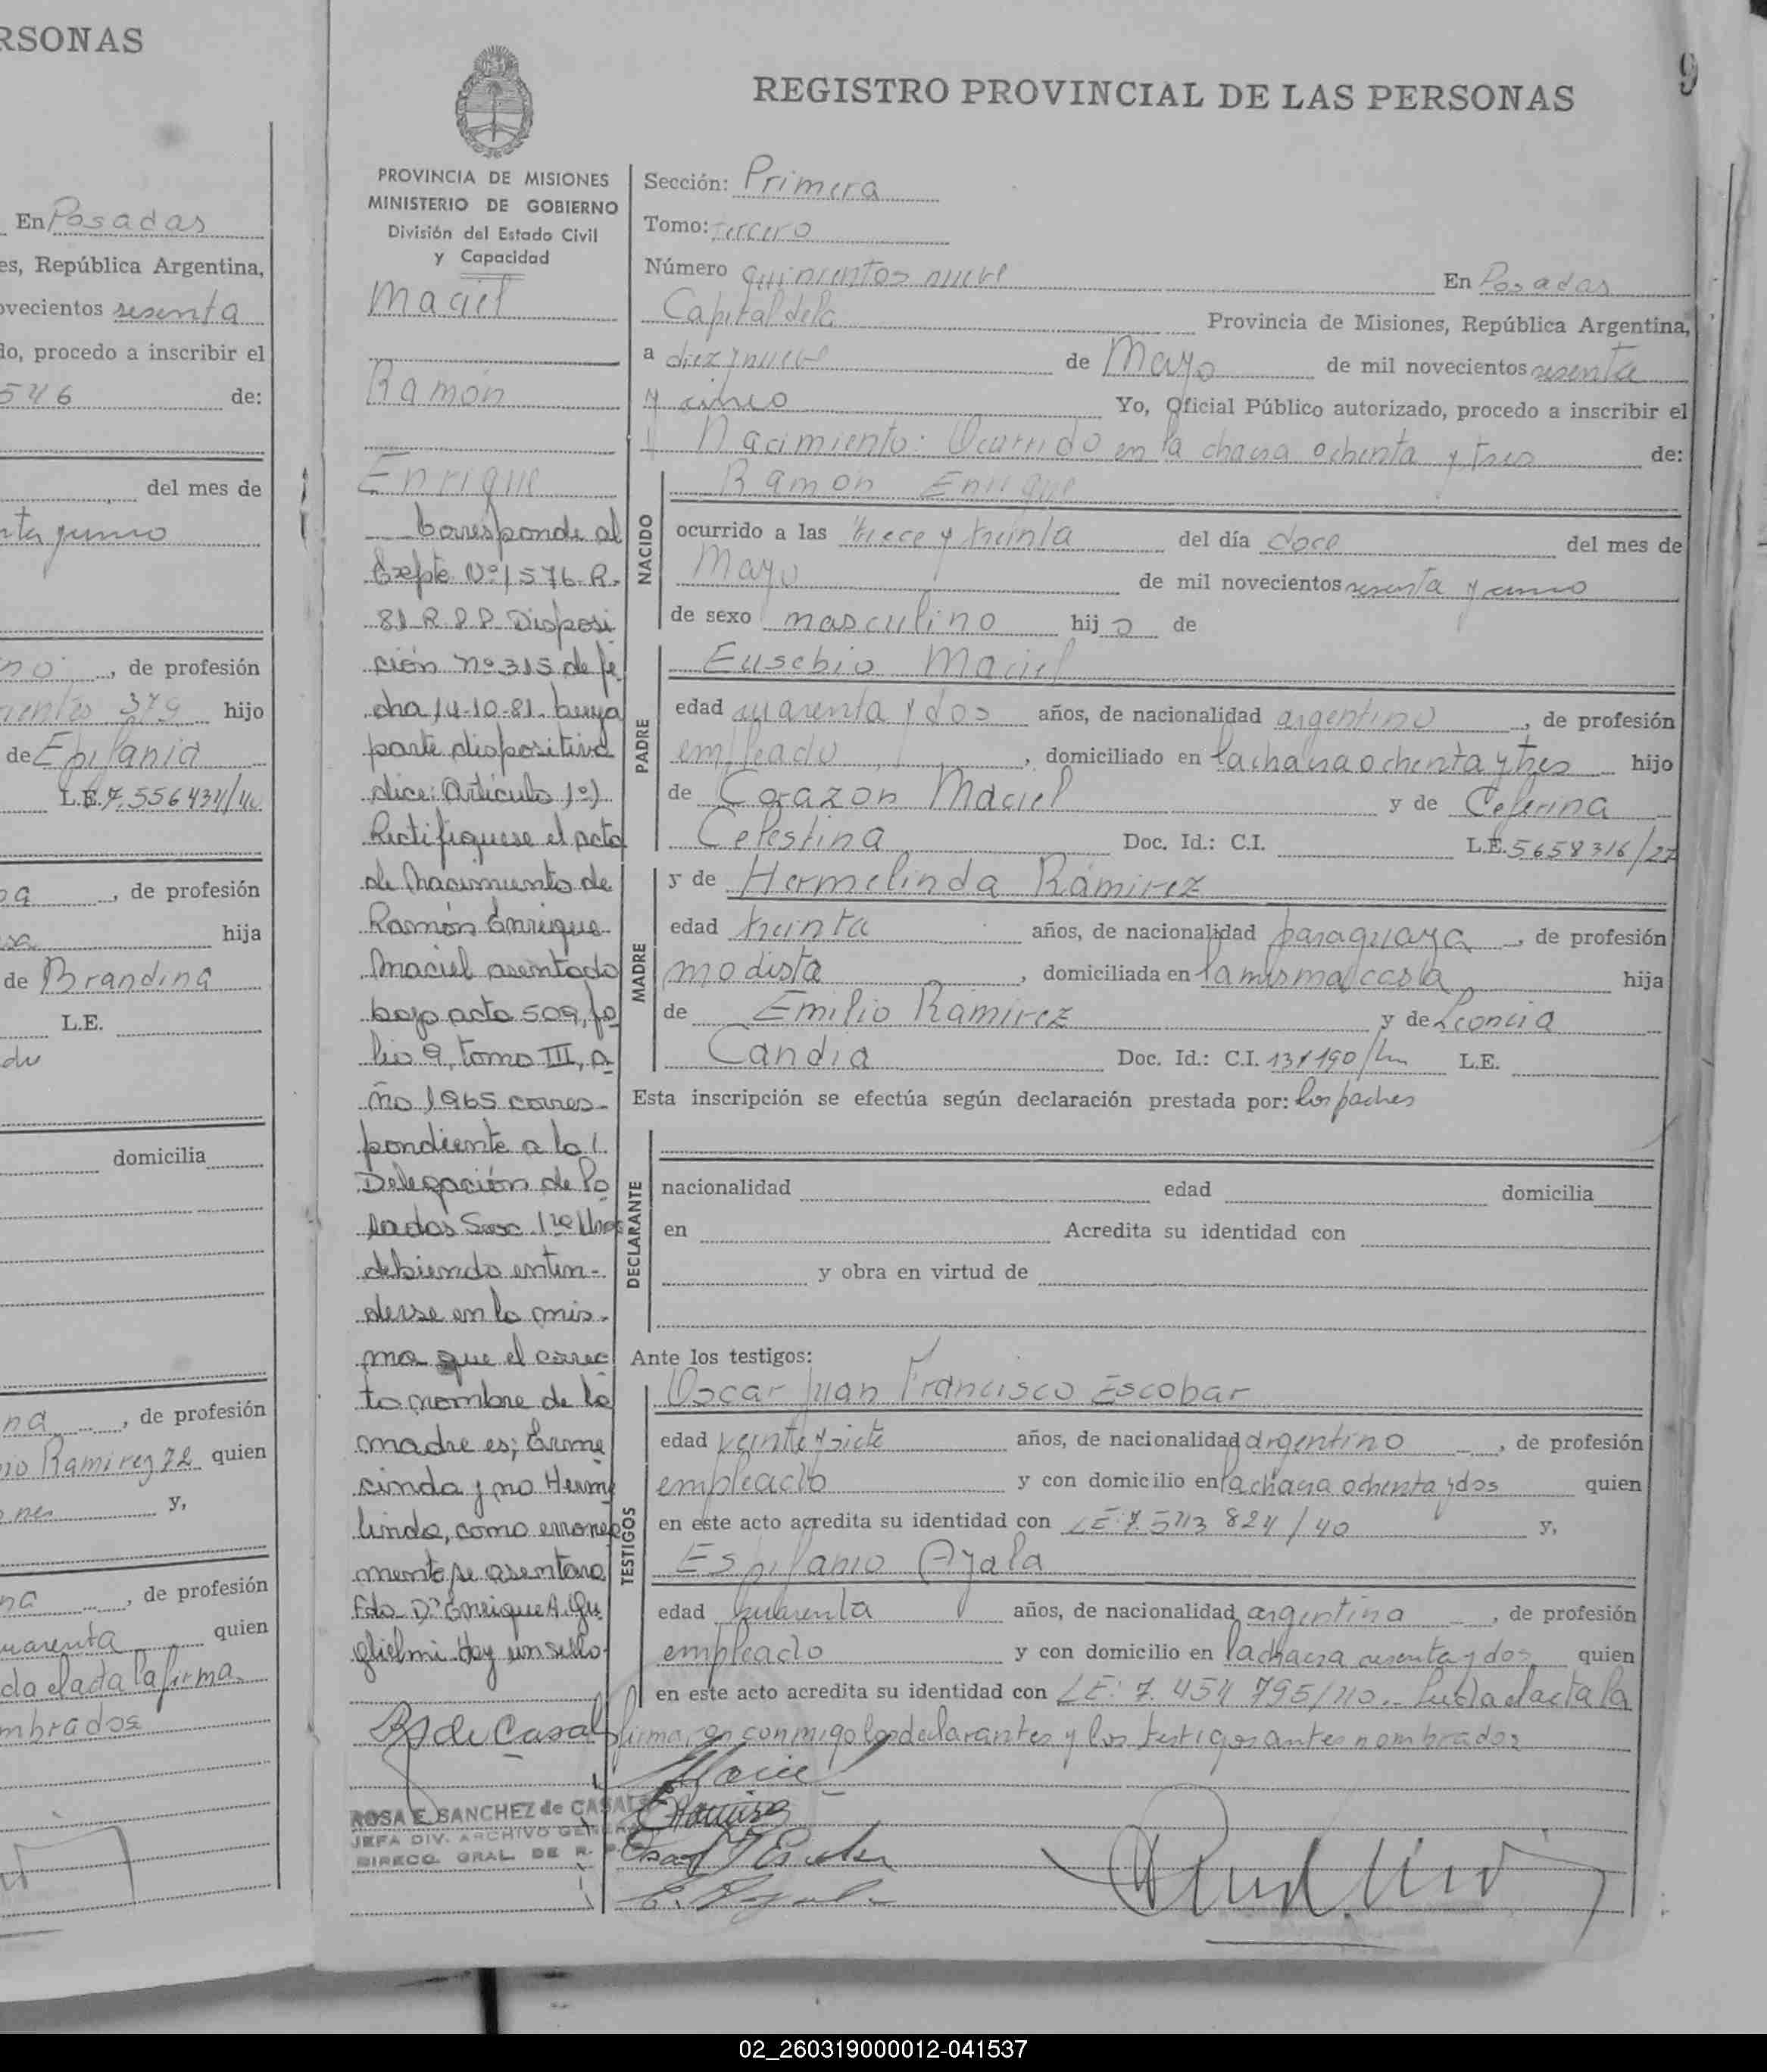 RSONAS
En Posadas
es, República Argentina,
ovecientos sesenta
do, procedo a inscribir el
546 de:
del mes de
, de profesión
379 hijo
de Epifania
L.E. 7.556434/40
, de profesión
hija
de Brandina
L.E.
domicilia
na, de profesión
Ramirez 72 quien
y,
, de profesión
cuarenta quien
da el acta la firma
mbrados
9
REGISTRO PROVINCIAL DE LAS PERSONAS
PROVINCIA DE MISIONES
MINISTERIO DE GOBIERNO
División del Estado Civil
y Capacidad
Maciel
Ramón
Enrique
Corresponde al
Expte Nº 1576-R.
81 R.P.P. Disposi
ción nº 315 de fe
cha 14-10-81. cuya
parte dispositiva
dice: Artículo 1º)
Rectifiquese el acta
de Nacimiento de
Ramón Enrique
Maciel asentado
bajo acta 509, fo
lio 9, tomo III, a
ño 1965 corres-
pondiente a la
Delegación de Po
sadas Secc. 1ra
debiendo enten-
derse en la mis-
ma que el correc
to nombre de la
madre es; Erme
linda y no Herme
linda, como errónea
mente se asentara
Fdo. Dr. Enrique A. Gu
glielmi. Hay un sello.
RS de Casals
ROSA E. SANCHEZ de CASALS
JEFA DIV. ARCHIVO GENERAL
DIRECC. GRAL. DE R. P.
Sección: Primera
Tomo: Tercero
Número quinientos nueve En Posadas
Capital de la Provincia de Misiones, República Argentina,
a diez y nueve de Mayo de mil novecientos sesenta
y cinco Yo, Oficial Público autorizado, procedo a inscribir el
Nacimiento: Ocurrido en la chacra ochenta y tres de:
NACIDO
Ramon Enrique
ocurrido a las trece y treinta del día doce del mes de
Mayo de mil novecientos sesenta y cinco
de sexo masculino hijo de
PADRE
Eusebio Maciel
edad cuarenta y dos años, de nacionalidad argentino, de profesión
empleado, domiciliado en la chacra ochenta y tres hijo
de Corazon Maciel y de Ceferina
Celestina Doc. Id.: C.I. L.E. 5658316/27
MADRE
y de Hermelinda Ramirez
edad treinta años, de nacionalidad paraguaya, de profesión
modista, domiciliada en la misma casa hija
de Emilio Ramirez y de Leoncia
Candia Doc. Id.: C.I. L.E.
Esta inscripción se efectúa según declaración prestada por: los padres
DECLARANTE
nacionalidad edad domicilia
en Acredita su identidad con
y obra en virtud de
Ante los testigos:
TESTIGOS
Oscar Juan Francisco Escobar
edad veinte y siete años, de nacionalidad argentino, de profesión
empleado y con domicilio en la chacra ochenta y dos quien
en este acto acredita su identidad con LE: 7.543 824/40 y,
Espifanio Ayala
edad cuarenta años, de nacionalidad argentina, de profesión
empleado y con domicilio en la chacra sesenta y dos quien
en este acto acredita su identidad con LE: 7.454 795/40.- Leida el acta la
firman conmigo los declarantes y los testigos antes nombrados
02_260319000012-041537